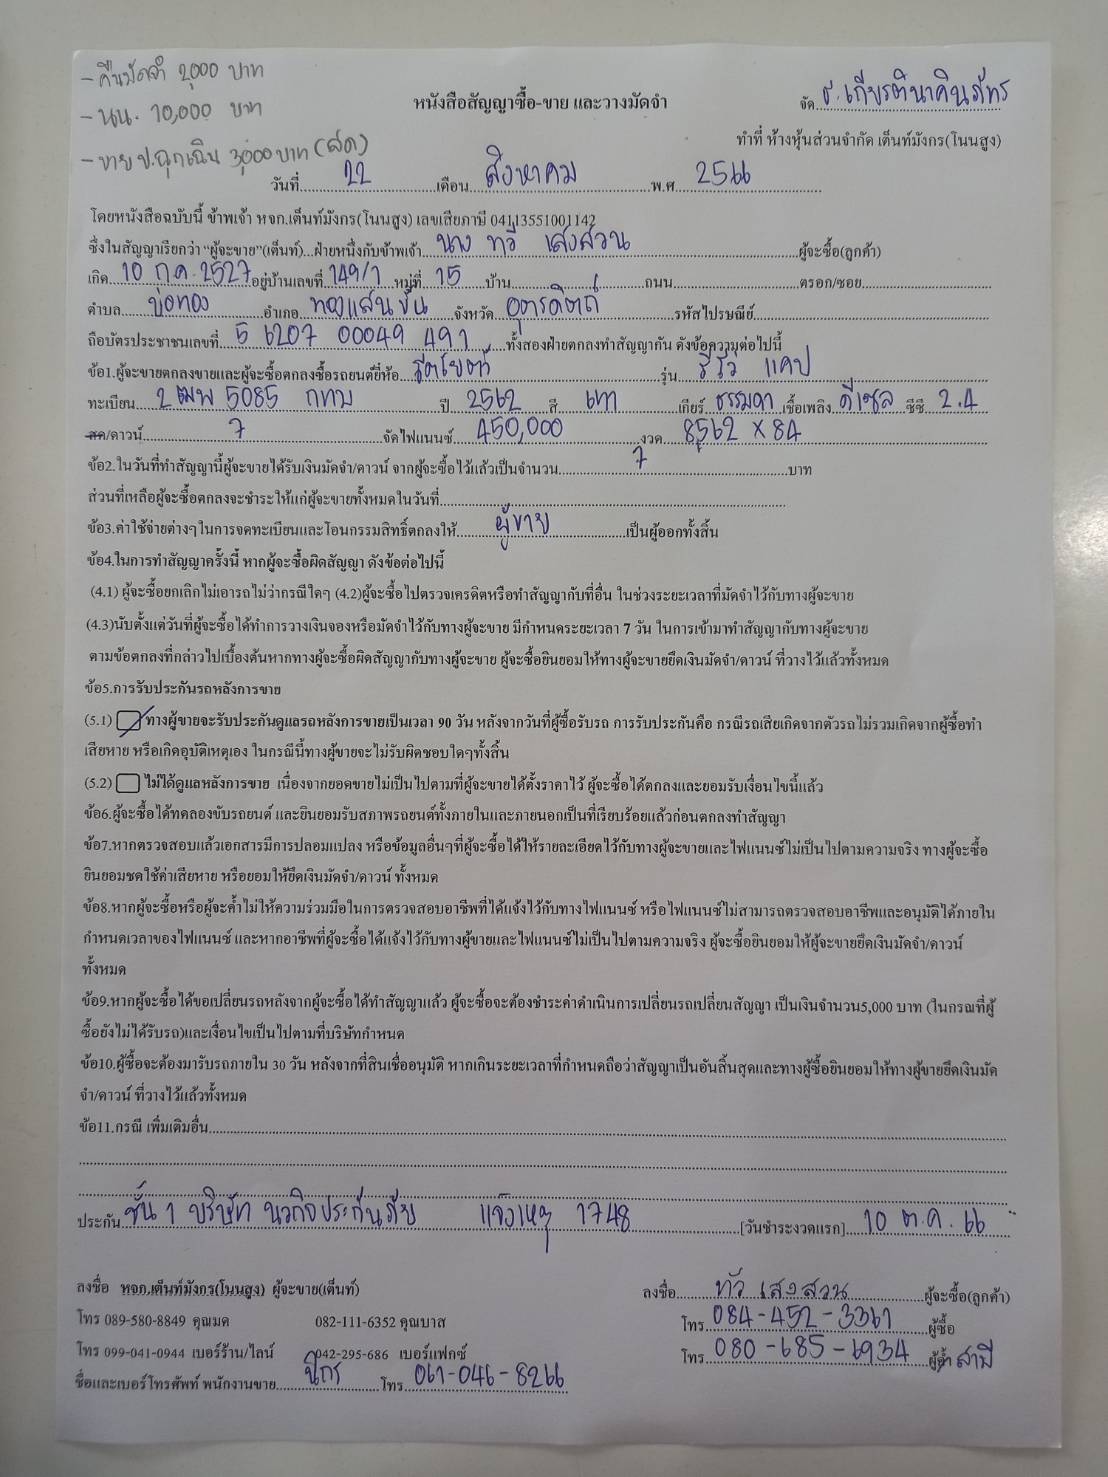 - คืนมัดจำ 2,000 บาท
- นน. 10,000 บาท
- ขาย ป.ฉุกเฉิน 3,000 บาท (สด)
หนังสือสัญญาซื้อ-ขาย และวางมัดจำ
จัด ธ.เกียรตินาคินภัทร
ทำที่ ห้างหุ้นส่วนจำกัด เต็นท์มังกร(โนนสูง)
วันที่ 22 เดือน สิงหาคม พ.ศ 2566
โดยหนังสือฉบับนี้ ข้าพเจ้า หจก.เต็นท์มังกร(โนนสูง) เลขเสียภาษี 04113551001142
ซึ่งในสัญญาเรียกว่า "ผู้จะขาย"(เต็นท์)...ฝ่ายหนึ่งกับข้าพเจ้า นาง ทวี เสงสวน ผู้จะซื้อ(ลูกค้า)
เกิด 10 ก.ค. 2527 อยู่บ้านเลขที่ 149/1 หมู่ที่ 15 บ้าน ถนน ตรอก/ซอย
ตำบล บ่อทอง อำเภอ ทองแสนขัน จังหวัด อุตรดิตถ์ รหัสไปรษณีย์
ถือบัตรประชาชนเลขที่ 5 6207 00049 491 ทั้งสองฝ่ายตกลงทำสัญญากัน ดังข้อความต่อไปนี้
ข้อ1.ผู้จะขายตกลงขายและผู้จะซื้อตกลงซื้อรถยนต์ยี่ห้อ รุ่น รีโว่ แคป
ทะเบียน 2ฒพ 5085 กทม ปี 2562 สี เทา เกียร์ ธรรมดา เชื้อเพลิง ดีเซล ซีซี 2.4
สด/ดาวน์ 7 จัดไฟแนนซ์ 450,000 งวด 8,562 x 84
ข้อ2.ในวันที่ทำสัญญานี้ผู้จะขายได้รับเงินมัดจำ/ดาวน์ จากผู้จะซื้อไว้แล้วเป็นจำนวน 7 บาท
ส่วนที่เหลือผู้จะซื้อตกลงจะชำระให้แก่ผู้จะขายทั้งหมดในวันที่
ข้อ3.ค่าใช้จ่ายต่างๆในการจดทะเบียนและโอนกรรมสิทธิ์ตกลงให้ ผู้ขาย เป็นผู้ออกทั้งสิ้น
ข้อ4.ในการทำสัญญาครั้งนี้ หากผู้จะซื้อผิดสัญญา ดังข้อต่อไปนี้
(4.1) ผู้จะซื้อยกเลิกไม่เอารถไม่ว่ากรณีใดๆ (4.2)ผู้จะซื้อไปตรวจเครดิตหรือทำสัญญากับที่อื่น ในช่วงระยะเวลาที่มัดจำไว้กับทางผู้จะขาย
(4.3)นับตั้งแต่วันที่ผู้จะซื้อได้ทำการวางเงินจองหรือมัดจำไว้กับทางผู้จะขาย มีกำหนดระยะเวลา 7 วัน ในการเข้ามาทำสัญญากับทางผู้จะขาย
ตามข้อตกลงที่กล่าวไปเบื้องต้นหากทางผู้จะซื้อผิดสัญญากับทางผู้จะขาย ผู้จะซื้อยินยอมให้ทางผู้จะขายยึดเงินมัดจำ/ดาวน์ ที่วางไว้แล้วทั้งหมด
ข้อ5.การรับประกันรถหลังการขาย
(5.1) ทางผู้ขายจะรับประกันดูแลรถหลังการขายเป็นเวลา 90 วัน หลังจากวันที่ผู้ซื้อรับรถ การรับประกันคือ กรณีรถเสียเกิดจากตัวรถไม่รวมเกิดจากผู้ซื้อทำ
เสียหาย หรือเกิดอุบัติเหตุเอง ในกรณีนี้ทางผู้ขายจะไม่รับผิดชอบใดๆทั้งสิ้น
(5.2) ไม่ได้ดูแลหลังการขาย เนื่องจากยอดขายไม่เป็นไปตามที่ผู้จะขายได้ตั้งราคาไว้ ผู้จะซื้อได้ตกลงและยอมรับเงื่อนไขนี้แล้ว
ข้อ6.ผู้จะซื้อได้ทดลองขับรถยนต์ และยินยอมรับสภาพรถยนต์ทั้งภายในและภายนอกเป็นที่เรียบร้อยแล้วก่อนตกลงทำสัญญา
ข้อ7.หากตรวจสอบแล้วเอกสารมีการปลอมแปลง หรือข้อมูลอื่นๆที่ผู้จะซื้อได้ให้รายละเอียดไว้กับทางผู้จะขายและไฟแนนซ์ไม่เป็นไปตามความจริง ทางผู้จะซื้อ
ยินยอมชดใช้ค่าเสียหาย หรือยอมให้ยึดเงินมัดจำ/ดาวน์ ทั้งหมด
ข้อ8.หากผู้จะซื้อหรือผู้จะค้ำไม่ให้ความร่วมมือในการตรวจสอบอาชีพที่ได้แจ้งไว้กับทางไฟแนนซ์ หรือไฟแนนซ์ไม่สามารถตรวจสอบอาชีพและอนุมัติได้ภายใน
กำหนดเวลาของไฟแนนซ์ และหากอาชีพที่ผู้จะซื้อได้แจ้งไว้กับทางผู้ขายและไฟแนนซ์ไม่เป็นไปตามความจริง ผู้จะซื้อยินยอมให้ผู้จะขายยึดเงินมัดจำ/ดาวน์
ทั้งหมด
ข้อ9.หากผู้จะซื้อได้ขอเปลี่ยนรถหลังจากผู้จะซื้อได้ทำสัญญาแล้ว ผู้จะซื้อจะต้องชำระค่าดำเนินการเปลี่ยนรถเปลี่ยนสัญญา เป็นเงินจำนวน5,000 บาท (ในกรณที่ผู้
ซื้อยังไม่ได้รับรถ)และเงื่อนไขเป็นไปตามที่บริษัทกำหนด
ข้อ10.ผู้ซื้อจะต้องมารับรถภายใน 30 วัน หลังจากที่สินเชื่ออนุมัติ หากเกินระยะเวลาที่กำหนดถือว่าสัญญาเป็นอันสิ้นสุดและทางผู้ซื้อยินยอมให้ทางผู้ขายยึดเงินมัด
จำ/ดาวน์ ที่วางไว้แล้วทั้งหมด
ข้อ11.กรณี เพิ่มเติมอื่น
ประกัน ชั้น 1 บริษัท นวกิจประกันภัย แจ้งเหตุ 1748 [วันชำระงวดแรก] 10 ต.ค. 66
ลงชื่อ หจก.เต็นท์มังกร(โนนสูง) ผู้จะขาย(เต็นท์) ลงชื่อ ทวี เสงสวน ผู้จะซื้อ(ลูกค้า)
โทร 089-580-8849 คุณมด 082-111-6352 คุณบาส โทร 084-452-3361 ผู้ซื้อ
โทร 099-041-0944 เบอร์ร้าน/ไลน์ 042-295-686 เบอร์แฟกซ์ โทร 080-685-6934 ผู้ค้ำ สามี
ชื่อและเบอร์โทรศัพท์ พนักงานขาย โทร 061-046-8266